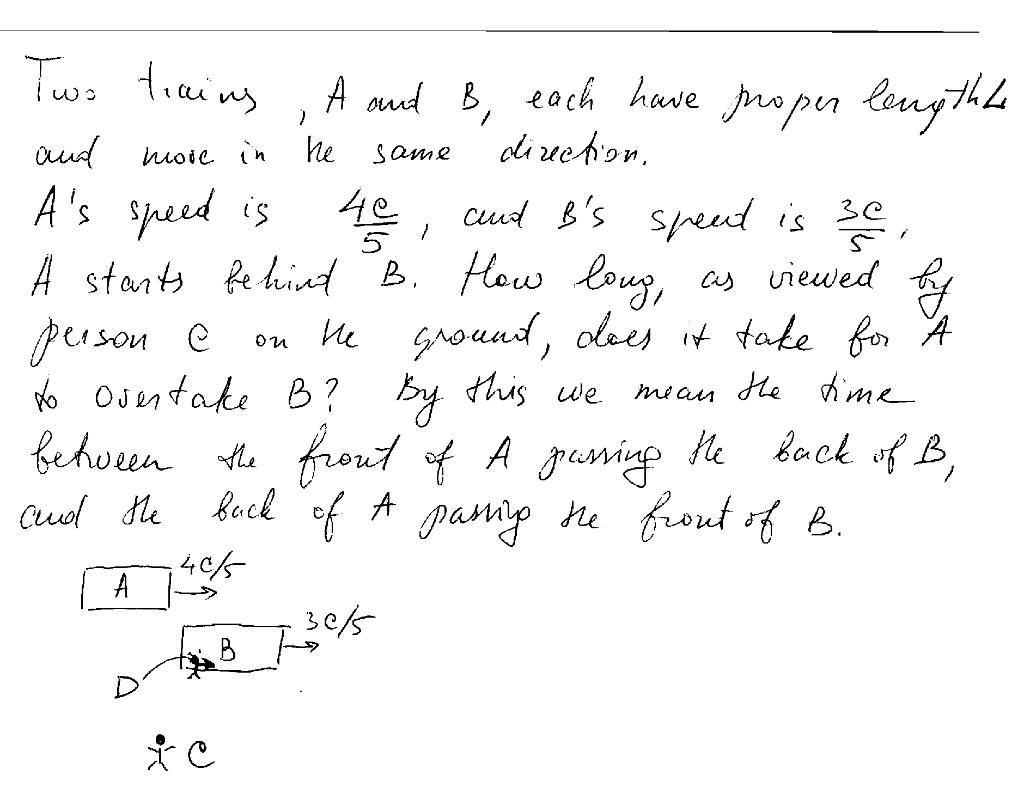 Two trains, A and B, each have proper length L
and move in the same direction.
A's speed is 4c/5, and B's speed is 3c/5,
A starts behind B. How long, as viewed by
person C on the ground, does it take for A
to overtake B? By this we mean the time
between the front of A passing the back of B,
and the back of A passing the front of B.
A 4c/5
B 3c/5
D
C